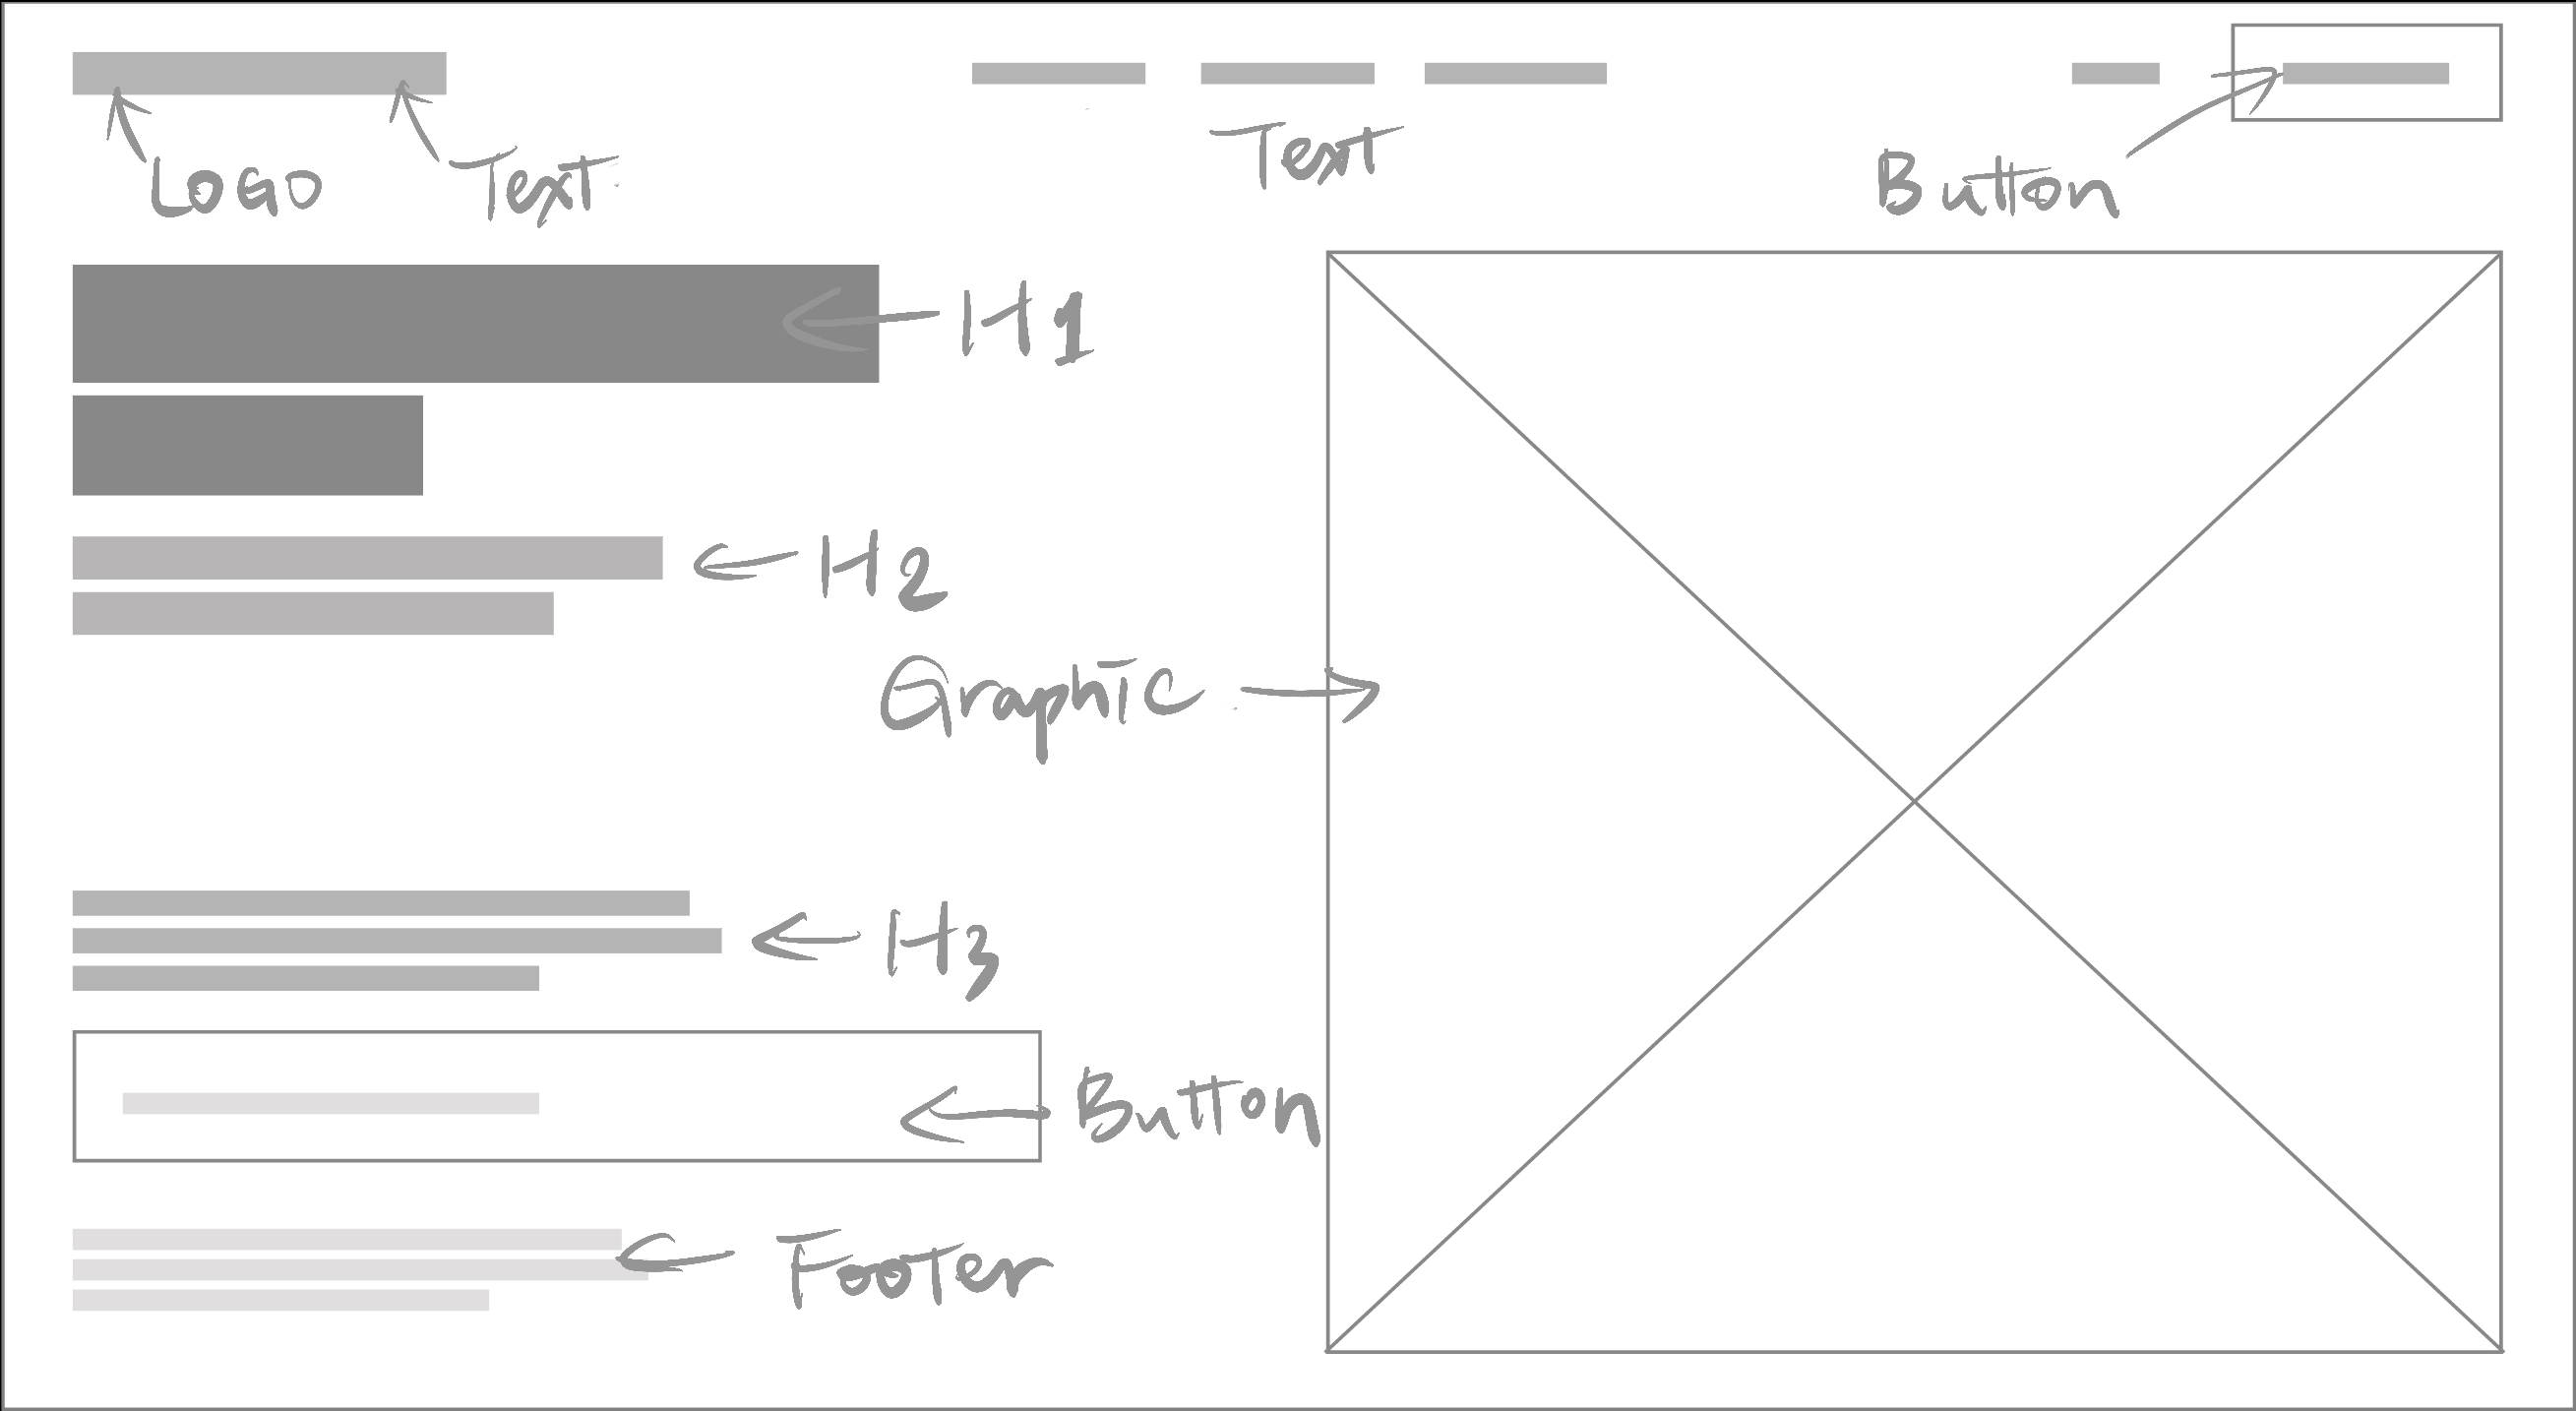 Logo
Text
Text
Button
H1
H2
Graphic
H3
Button
Footer